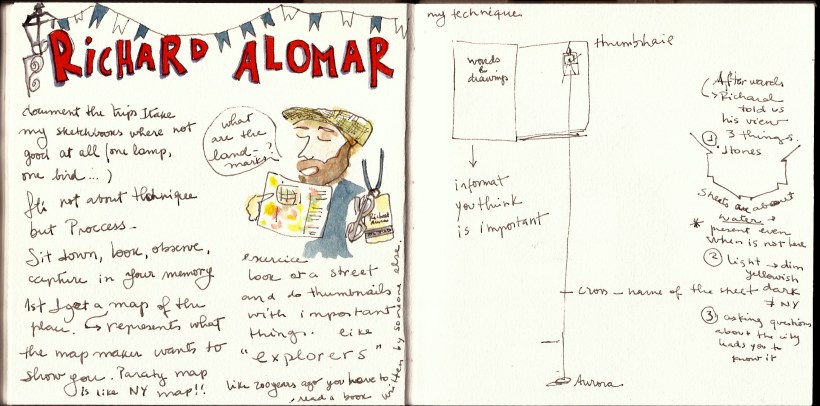 RICHARD ALOMAR
document the trips I take
my sketchbooks where not
good at all (one lamp,
one bird...)
It's not about thecnique
but Proccess.
Sit down, look, observe,
capture in your memory
1st I get a map of the
place. represents what
the map maker wants to
show you. Paraty map
is like NY map!!
what
are the
land-
marks?
Richard
Alomar
exercice
look at a street
and do thumbnails
with important
things. like
"explorers"
like 200 years ago you have to
read a book
written by someone else.
my technique
words
&
drawings
thumbnail
informat
you think
is important
cross - name of the street
Aurora
Afterwards
Richard
told us
his view
3 things
① stones
Streets are about
water
* present even
when is not here
② light → dim
yellowish
dark
≠ NY
③ asking questions
about the city
leads you to
know it